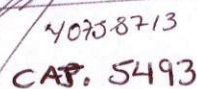 40758713
CAP. 5493